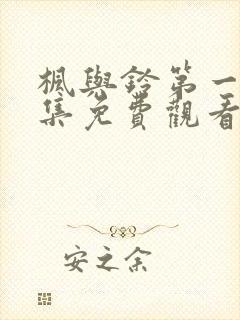 楓與鈴第一
集免費觀看
安之余